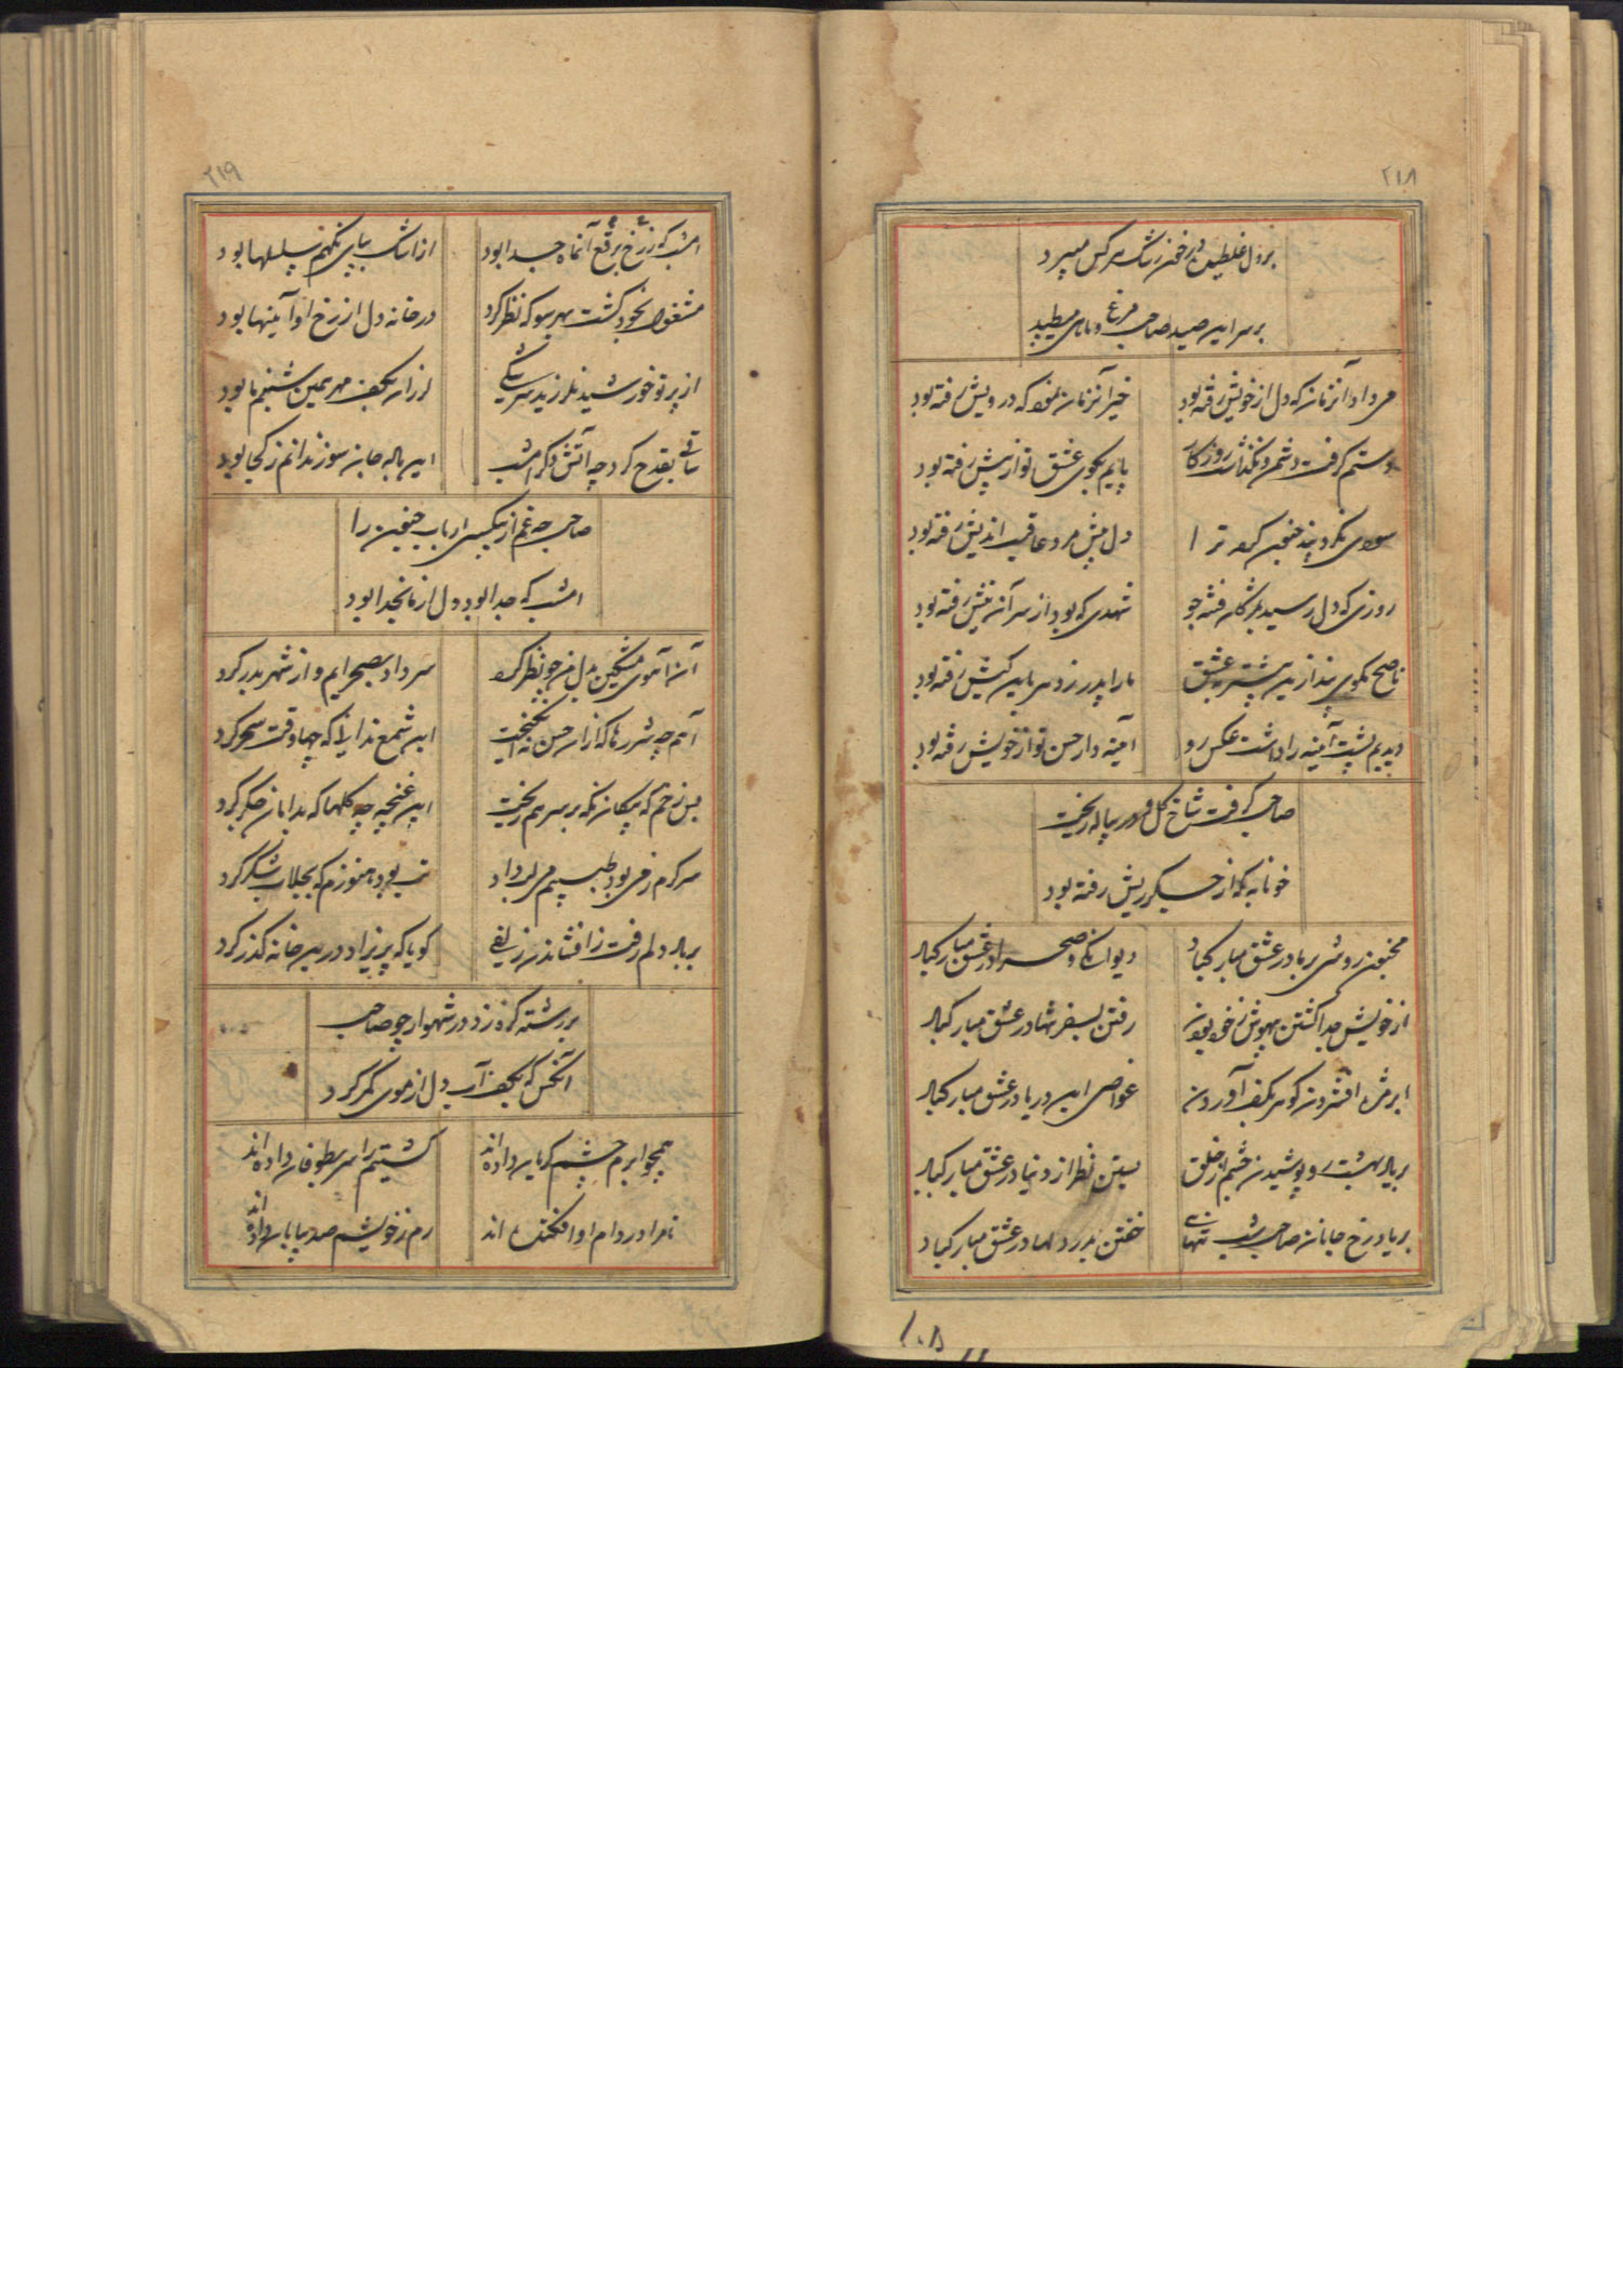 ۲۱۸
بر دل غلطیده در خون رشک هر کس میبرد
بر سر این صید صاحب مرغ و ماهی میطپد
می داد آنزمان که دل از خویش رفته بود
خیر آنزمان نمود که درویش رفته بود
دستم گرفت دشمن و نگذاشت روزگار
پایم بکوی عشق تو از پیش رفته بود
سودی نکرد پند جنون کرده ترا
دل پیش مرد عاقبت اندیش رفته بود
روزی که دل رسید بمژگان فتنه جو
شهدی که بود از سر آن نیش رفته بود
ناصح مگوی پند ازین پیشتر بعشق
ما را پدر ز دهر باین کیش رفته بود
دیدیم پشت آینه را داشت عکس رو
آینه دار حسن تو از خویش رفته بود
صاحب گرفت شاخ گل و در پیاله ریخت
خونابه که از جگر ریش رفته بود
مجنون روشی بر ما در عشق مبارکباد
دیوانگی و صحرا در عشق مبارکباد
از خویش جدا گشتن بیهوش ز خود بودن
رفتن بسفر تنها در عشق مبارکباد
ابر مژه افشردن گوهر بکف آوردن
غواصی این دریا در عشق مبارکباد
بر یاد بهشت رو پوشیدن چشم از خلق
بستن نظر از دنیا در عشق مبارکباد
بر یاد رخ جانان صاحب شب تنهایی
خفتن بدر دلها در عشق مبارکباد
۱۰۸
۲۱۹
امشب که ز رخ برقع آنماه جدا بود
از اشک بپای نگهم سلسلها بود
مشغول بخود گشت بهر سو که نظر کرد
در خانه دل از رخ او آینها بود
از پرتو خورشید نلرزید سرشکی
لرزان بکف مهر همین شبنم ما بود
ساقی بقدح کرد چه آتش دگر امشب
این باله جان سوز ندانم ز کجا بود
صاحب چه غم از بیکسی ارباب جنون را
امشب که جدا بود دل از ما بخدا بود
آن آهوی مشکین بدل من چو نظر کرد
سر داد بصحرایم و از شهر بدر کرد
آهم چه شررها که از آن حسن نه انگیخت
این شمع ندانی که چها وقت سحر کرد
بس زخم که پیکان نگه بر سر هم ریخت
این غنچه چه گلها که بدامان جگر کرد
سرگرم زمی بود طبیبم می لب داد
تب بود هنوزم که بجلاب شکر کرد
بر باد دلم رفت ز افشاندن زلفی
گویا که پریزاد درین خانه گذر کرد
بر رشته گره زد در شهوار چو صاحب
آنکس که بکف آب دل از موی کمر کرد
همچو ابرم چشم گریان داده اند
کشتیم را سر بطوفان داده اند
تا مرا در دام او افکنده اند
رم ز خویشم صد بیابان داده اند